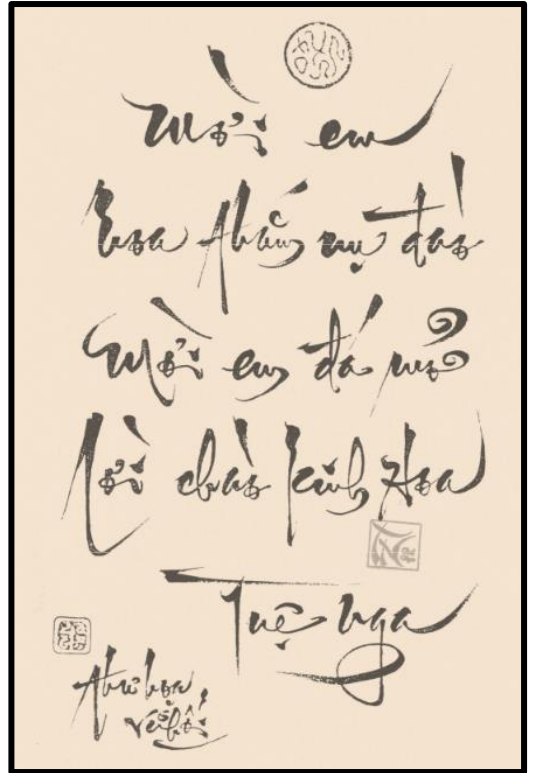 Mời em
hoa thắm nụ đào
Mời em đá nở
lời chào Hoa
Tuệ Nga
Thư họa
Vũ Hối